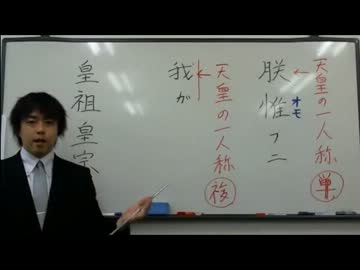 天皇の一人称 単
朕惟フニ
オモ
天皇の一人称 複
我が
皇祖皇宗